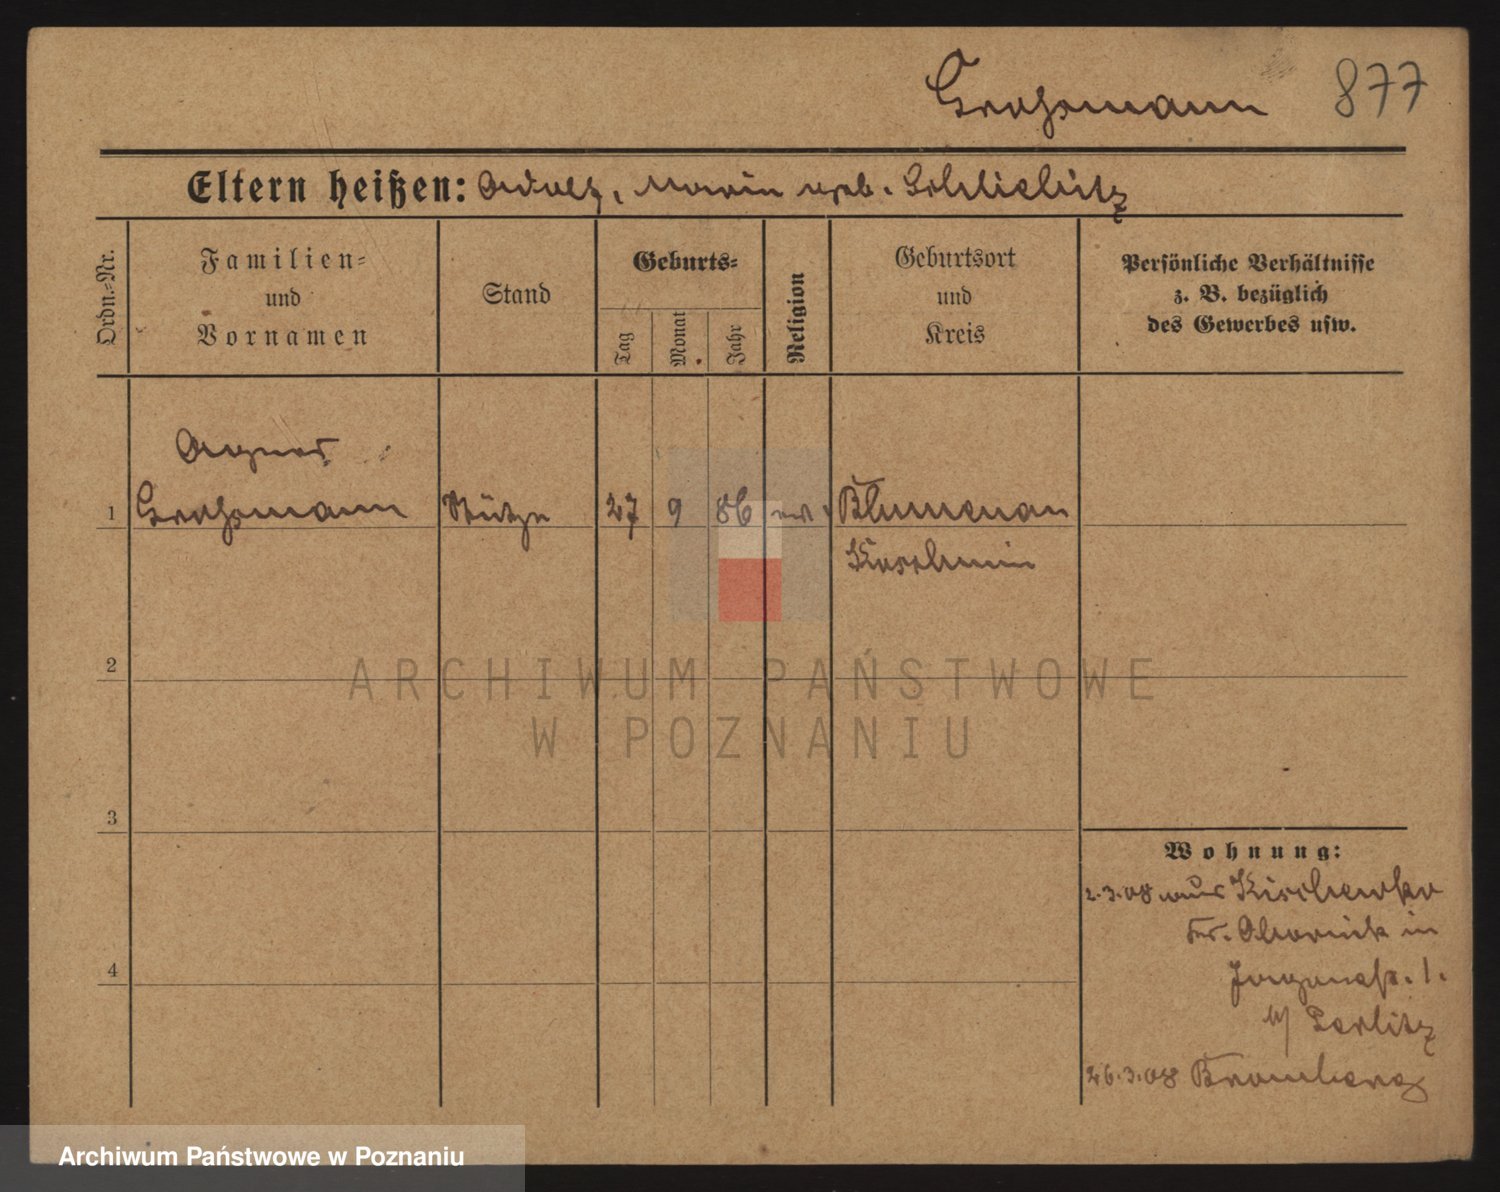 Grossmann 877
Eltern heißen: Adolf, Maria geb. Schlielitz
Ordn.-Nr.
Familien-
und
Vornamen
Stand
Geburts-
Tag
Monat
Jahr
Religion
Geburtsort
und
Kreis
Persönliche Verhältnisse
z. B. bezüglich
des Gewerbes usw.
Agnes
1 Grossmann Stütze 27 9 86 ev. Blumenau
Koschmin
2
ARCHIWUM PAŃSTWOWE
W POZNANIU
3
Wohnung:
2.3.08 aus Kischewko
Kr. Obornik in
1.
b/
4
26.3.08 Bromberg
Archiwum Państwowe w Poznaniu